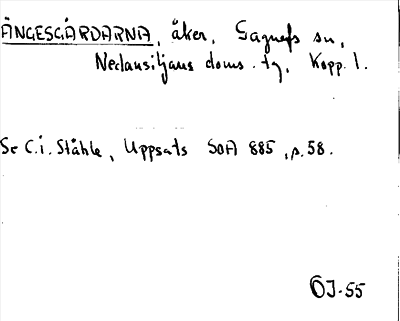 ÄNGESGÅRDARNA, åker, Gagnefs sn,
Nedansiljans doms. tg, Kopp. l.
Se C.i. Ståhle, Uppsats SOA 885, p. 58.
ÖJ-55